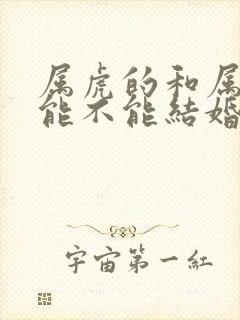 属虎的和属
能不能結婚
宇宙第一紅